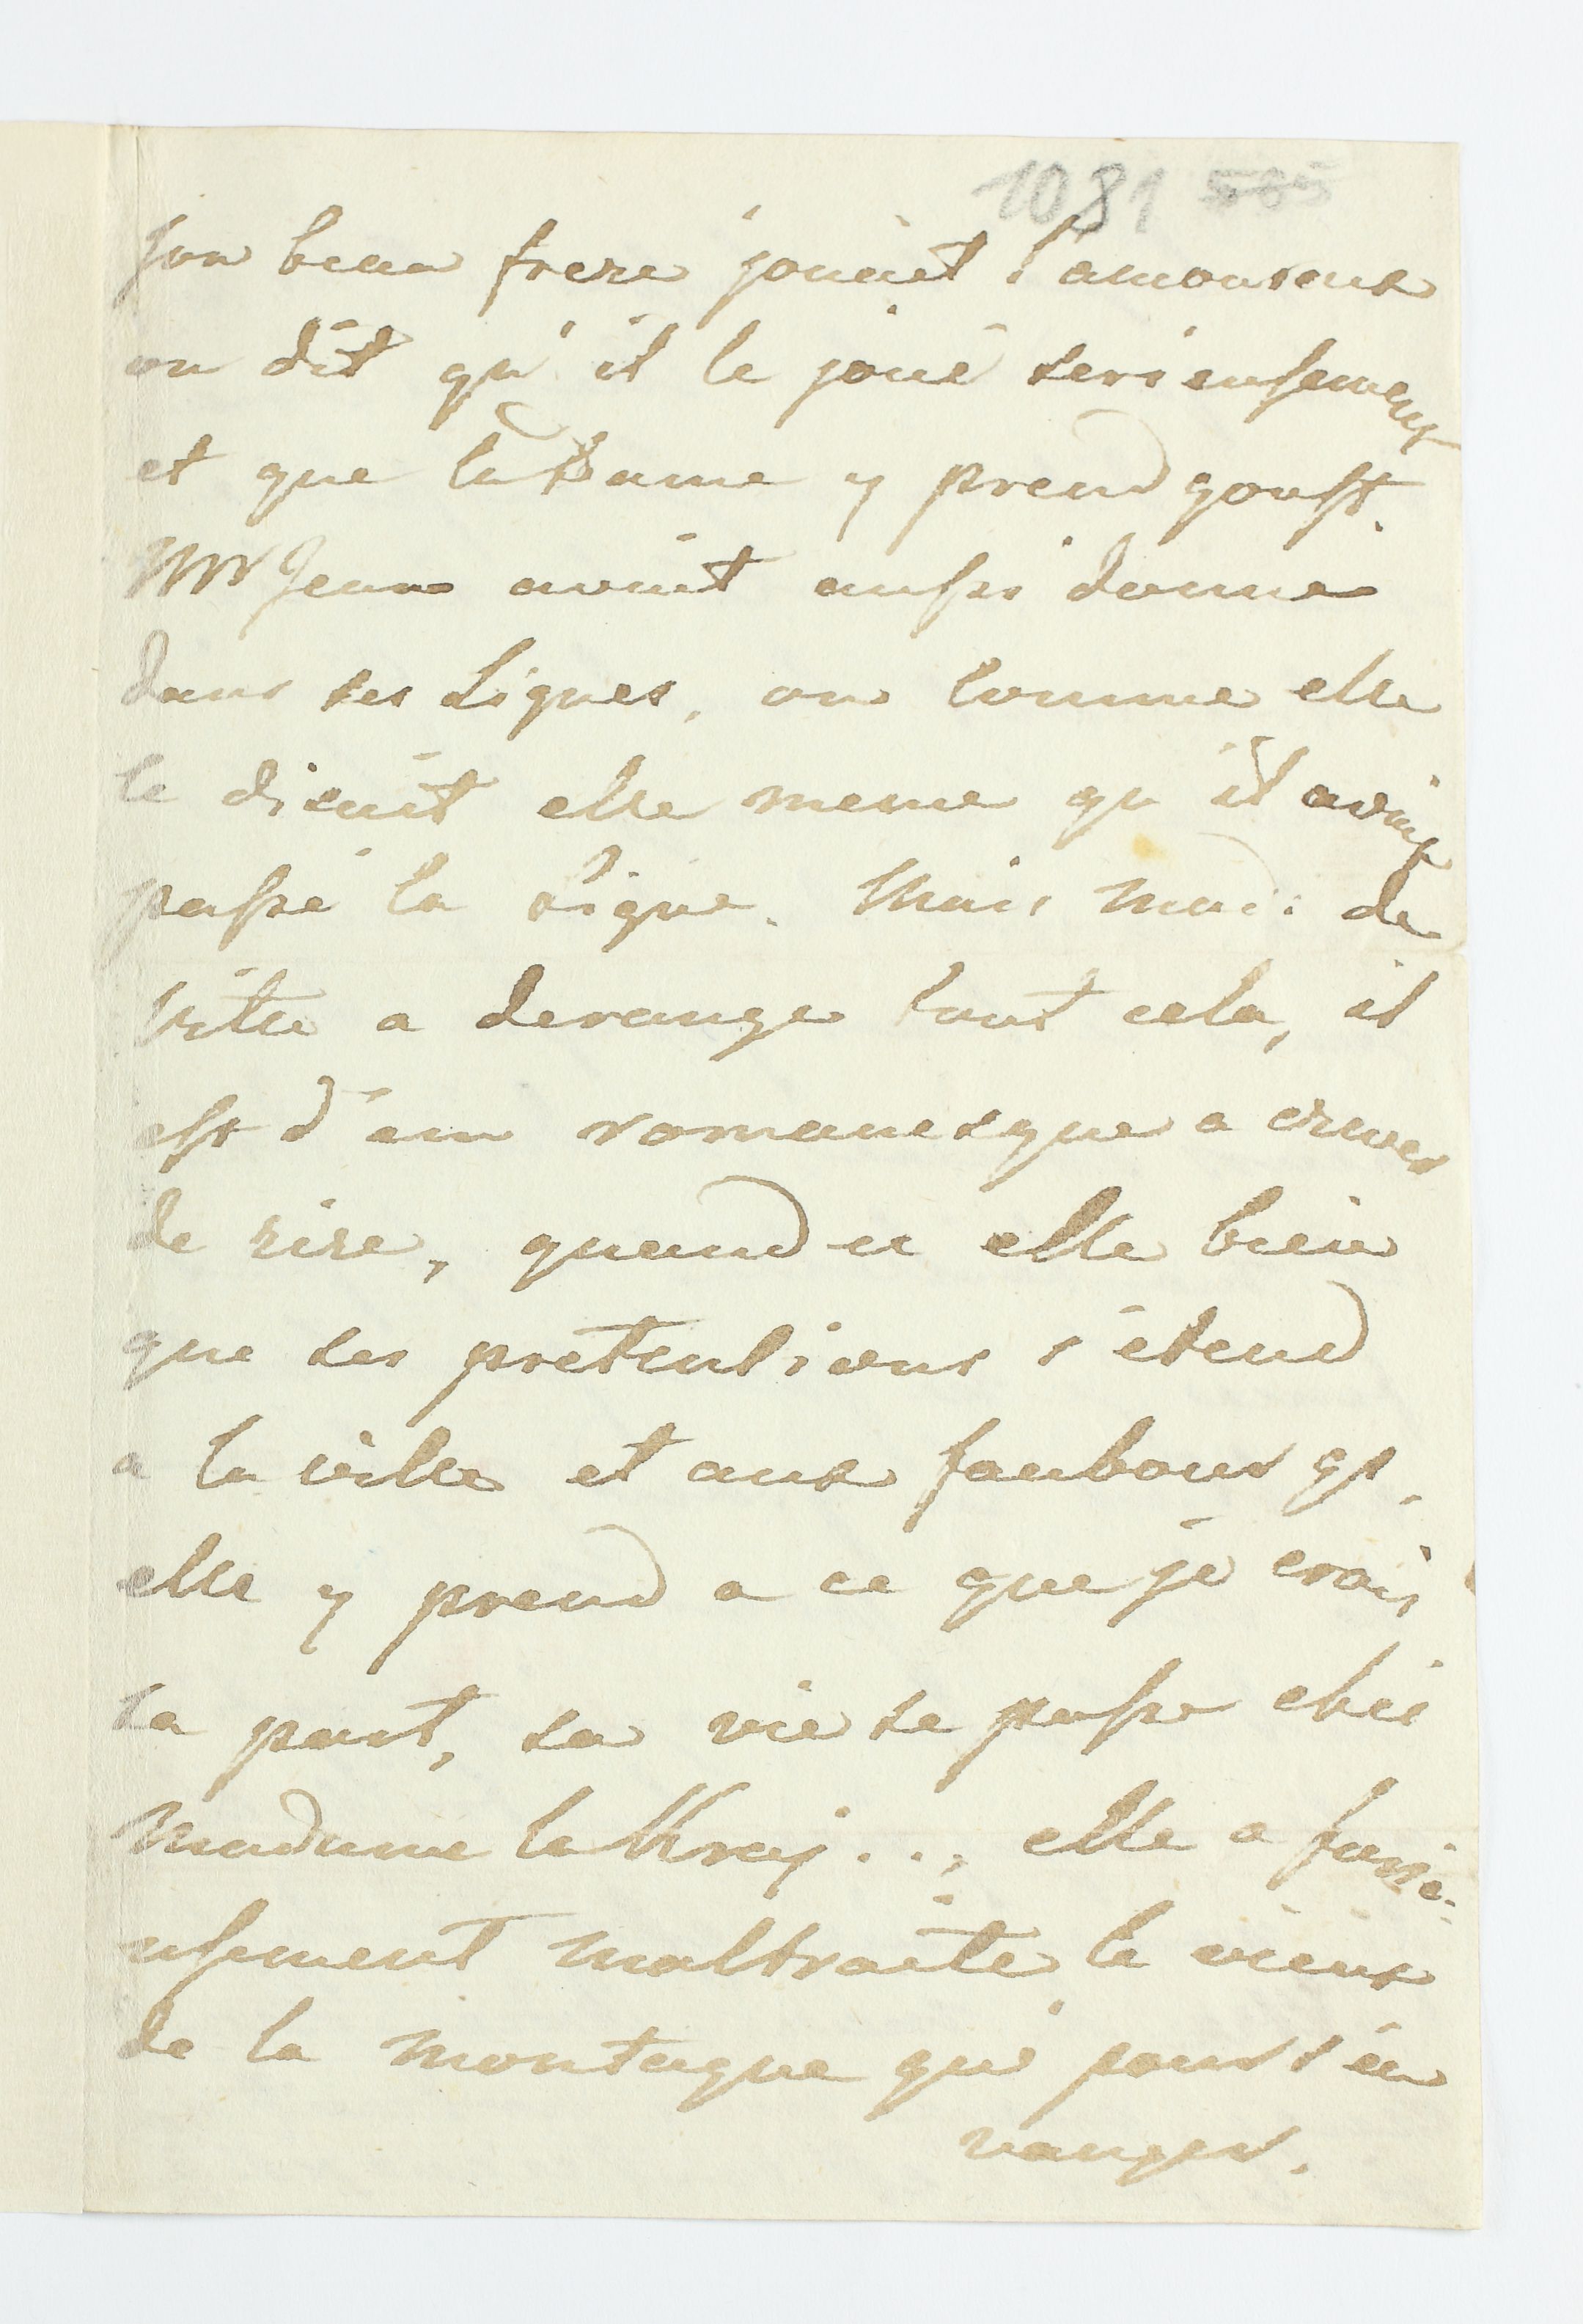 1081 585
son beau frere jouait l'amoureux
on dit qu'il le joue serieusement
et que la Dame y prend goust.
Mr Jean avait aussi donne
dans ses Lignes, ou comme elle
le disait elle meme qu'il avait
passé la ligne. Mais de
a derange tout cela, il
est d'un romanesque a crever
de rire, quand a elle bien
que ses pretentions s'étend
a la ville et aux faubourgs,
elle y prend a ce que je crois
sa part, sa vie se passe chéz
Madame la Kray..., elle a furie-
usement maltraite le vieux
de la montagne qui pour s'en
vanger.